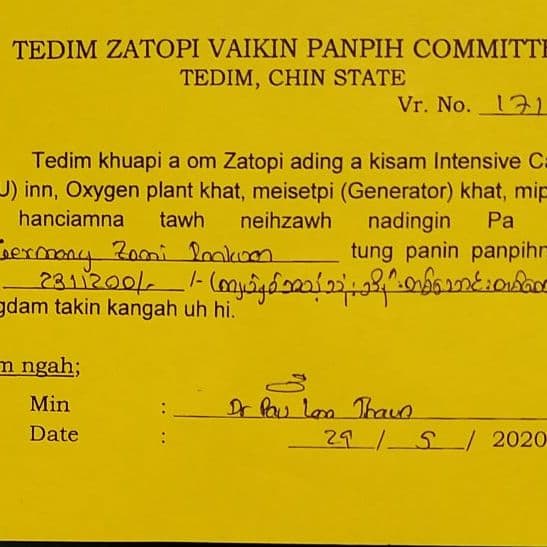 TEDIM ZATOPI VAIKIN PANPIH COMMITTE
TEDIM, CHIN STATE
Vr. No. 171
Tedim khuapi a om Zatopi ading a kisam Intensive Ca
U) inn, Oxygen plant khat, meisetpi (Generator) khat, mip
hanciamna tawh neihzawh nadingin Pa
Germany Zomi Innkuan tung panin panpihn
2311200/- /-(
gdam takin kangah uh hi.
m ngah;
Min : Dr Pau Lon Thawn
Date : 29 / 5 / 2020